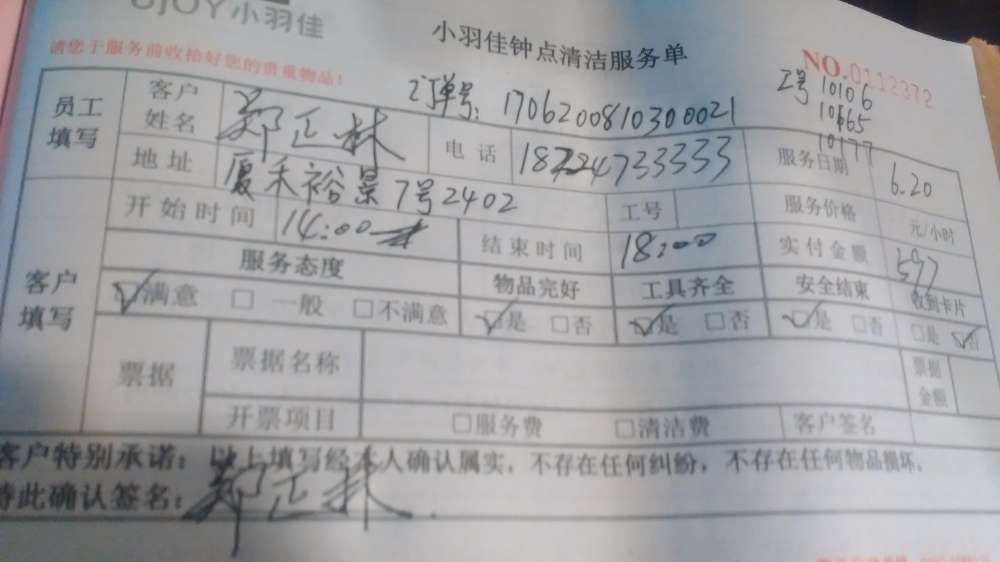 UJOY小羽佳
小羽佳钟点清洁服务单
NO.0112372
请您于服务前收拾好您的贵重物品！
订单号：170620081030​0021
工号 10106
10665
10177
员工填写 客户姓名 郑正林 电话 18724733333 服务日期 6.20
地址 厦禾裕景7号2402 工号 服务价格 元/小时
客户填写 开始时间 14:00 结束时间 18:00 实付金额 597
服务态度 物品完好 工具齐全 安全结束 收到卡片
☑满意 □一般 □不满意 ☑是 □否 ☑是 □否 ☑是 □否 □是 ☑否
票据 票据名称 票据金额
开票项目 □服务费 □清洁费 客户签名
客户特别承诺：以上填写经本人确认属实，不存在任何纠纷，不存在任何物品损坏。
特此确认签名：郑正林.